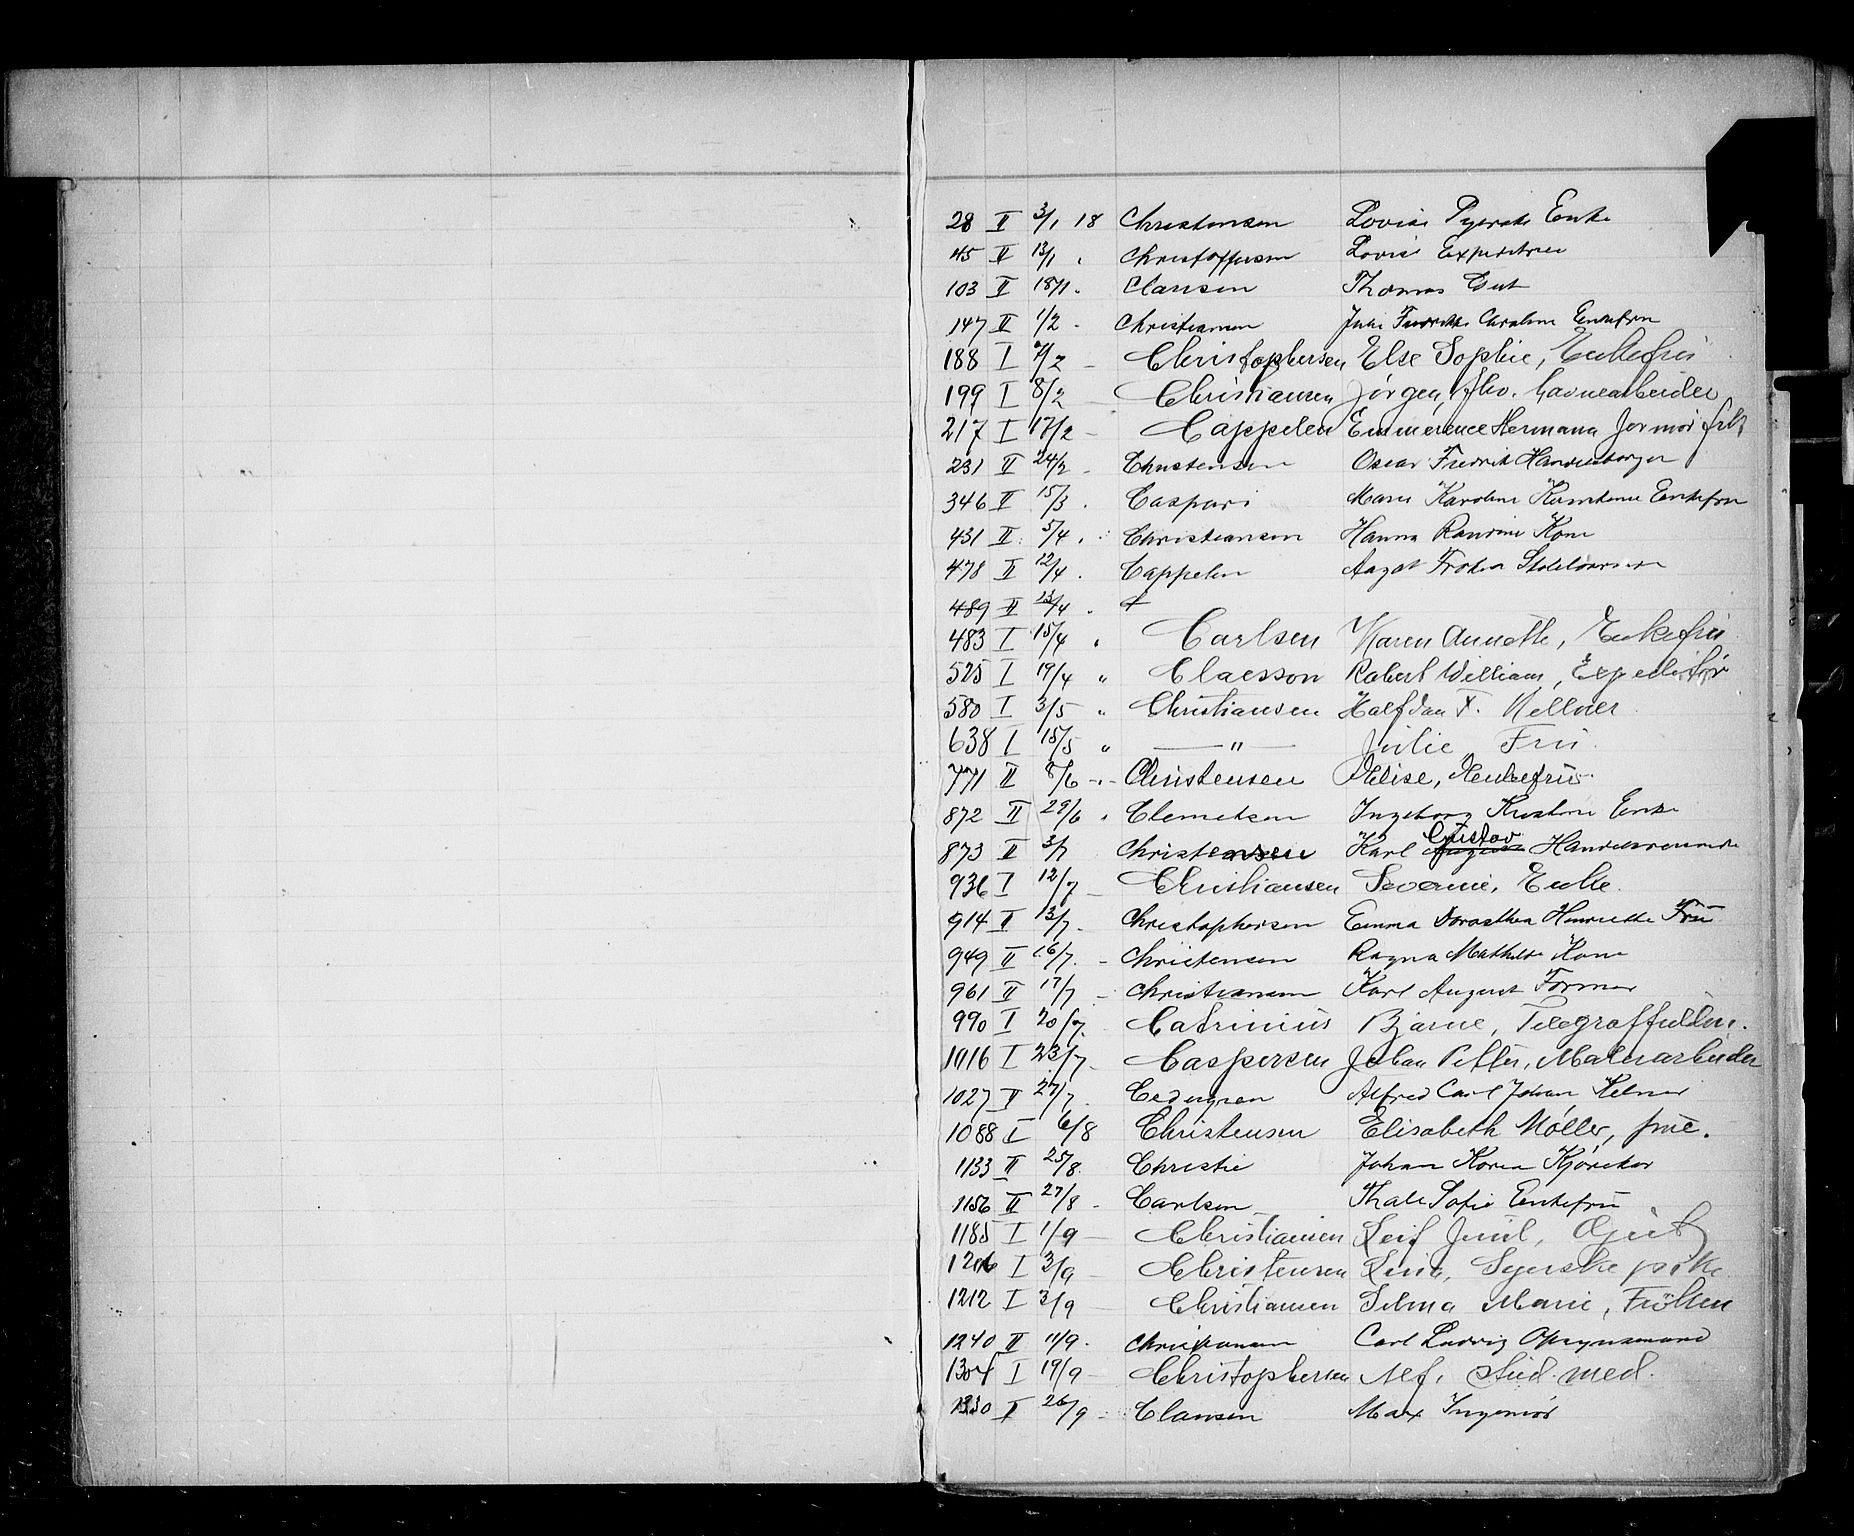 28 II 3/1 18 Christensen Lovise Enke
45 II 13/1 Christoffersen Lovise Expeditrice
103 II 18/1 Clausen Thomas Gut
147 II 1/2 - Christiansen Julie Fredrikke Caroline Enkefru
188 I 7/2 - Christophersen Else Sophie, Enkefru
199 I 8/2 - Christiansen Jørgen, fhv. havnearbeider
217 I 17/2 - Cappelen Emmerence Hermana Jormor
231 II 24/2 - Christensen Oscar Fredrik Handelsborger
346 II 15/3 . Caspari Marie Karoline Enkefru
431 II 5/4 . Christiansen Hanna Randine Kone
478 II 12/4 . Cappelen Aagot Frøken
489 II 13/4 .
483 I 15/4 " Carlsen Karen Annette, Enkefru
525 I 19/4 " Claesson Robert William, Expeditør
580 I 3/5 " Christiansen Halfdan F. Kellner
638 I 15/5 " — " — Julie Fru.
771 II 8/6 - Christensen Elise, Enkefru
872 II 29/6 " Clemetsen Ingeborg Kristine Enke
873 II 3/7 Christensen Karl Gustav August Handelsreisende
936 I 12/7 - Christiansen Severine, Enke.
914 II 13/7 - Christophersen Emma Dorothea Henriette Fru
949 II 16/7 - Christensen Ragna Mathilde Kone
961 II 17/7 - Christiansen Karl August Former
990 I 20/7 Catrinius Bjarne, Telegraffuldm.
1016 I 23/7 - Caspersen Johan Petter, Malerarbeider
1027 II 27/7 Cedergren Alfred Carl Johan Kelner
1088 I 6/8 Christensen Elisabeth Møller, frue.
1133 II 25/8 Christie Johan Koren
1156 II 27/8 - Carlsen Thale Sofie Enkefru
1185 I 1/9 - Christiansen Leif Juul, Gut
1206 I 3/9 - Christensen Lina, Syerske
1212 I 3/9 - Christiansen Selma Marie, Frøken
1240 II 11/9 - Christiansen Carl Ludvig Opsynsmand
1304 I 19/9 - Christophersen Alf, stud. med.
1330 II 26/9 - Clausen Max Ingeniør